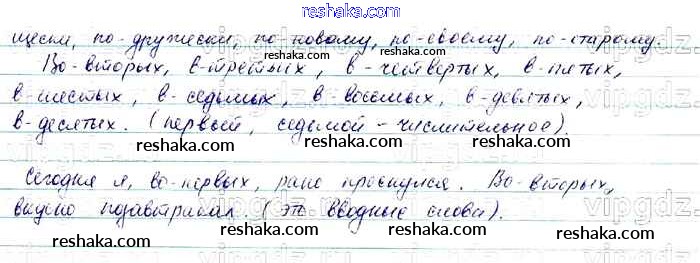 reshaka.com
щески, по-дружески, по-новому, по-своему, по-старому.
reshaka.com
Во-вторых, в-третьих, в-четвёртых, в-пятых,
в-шестых, в-седьмых, в-восьмых, в-девятых,
reshaka.com reshaka.com reshaka.com
в-десятых. (первый, седьмой - числительное).
reshaka.com
Сегодня я, во-первых, рано проснулся. Во-вторых,
reshaka.com reshaka.com
вкусно позавтракал. (это вводные слова).
reshaka.com reshaka.com reshaka.com